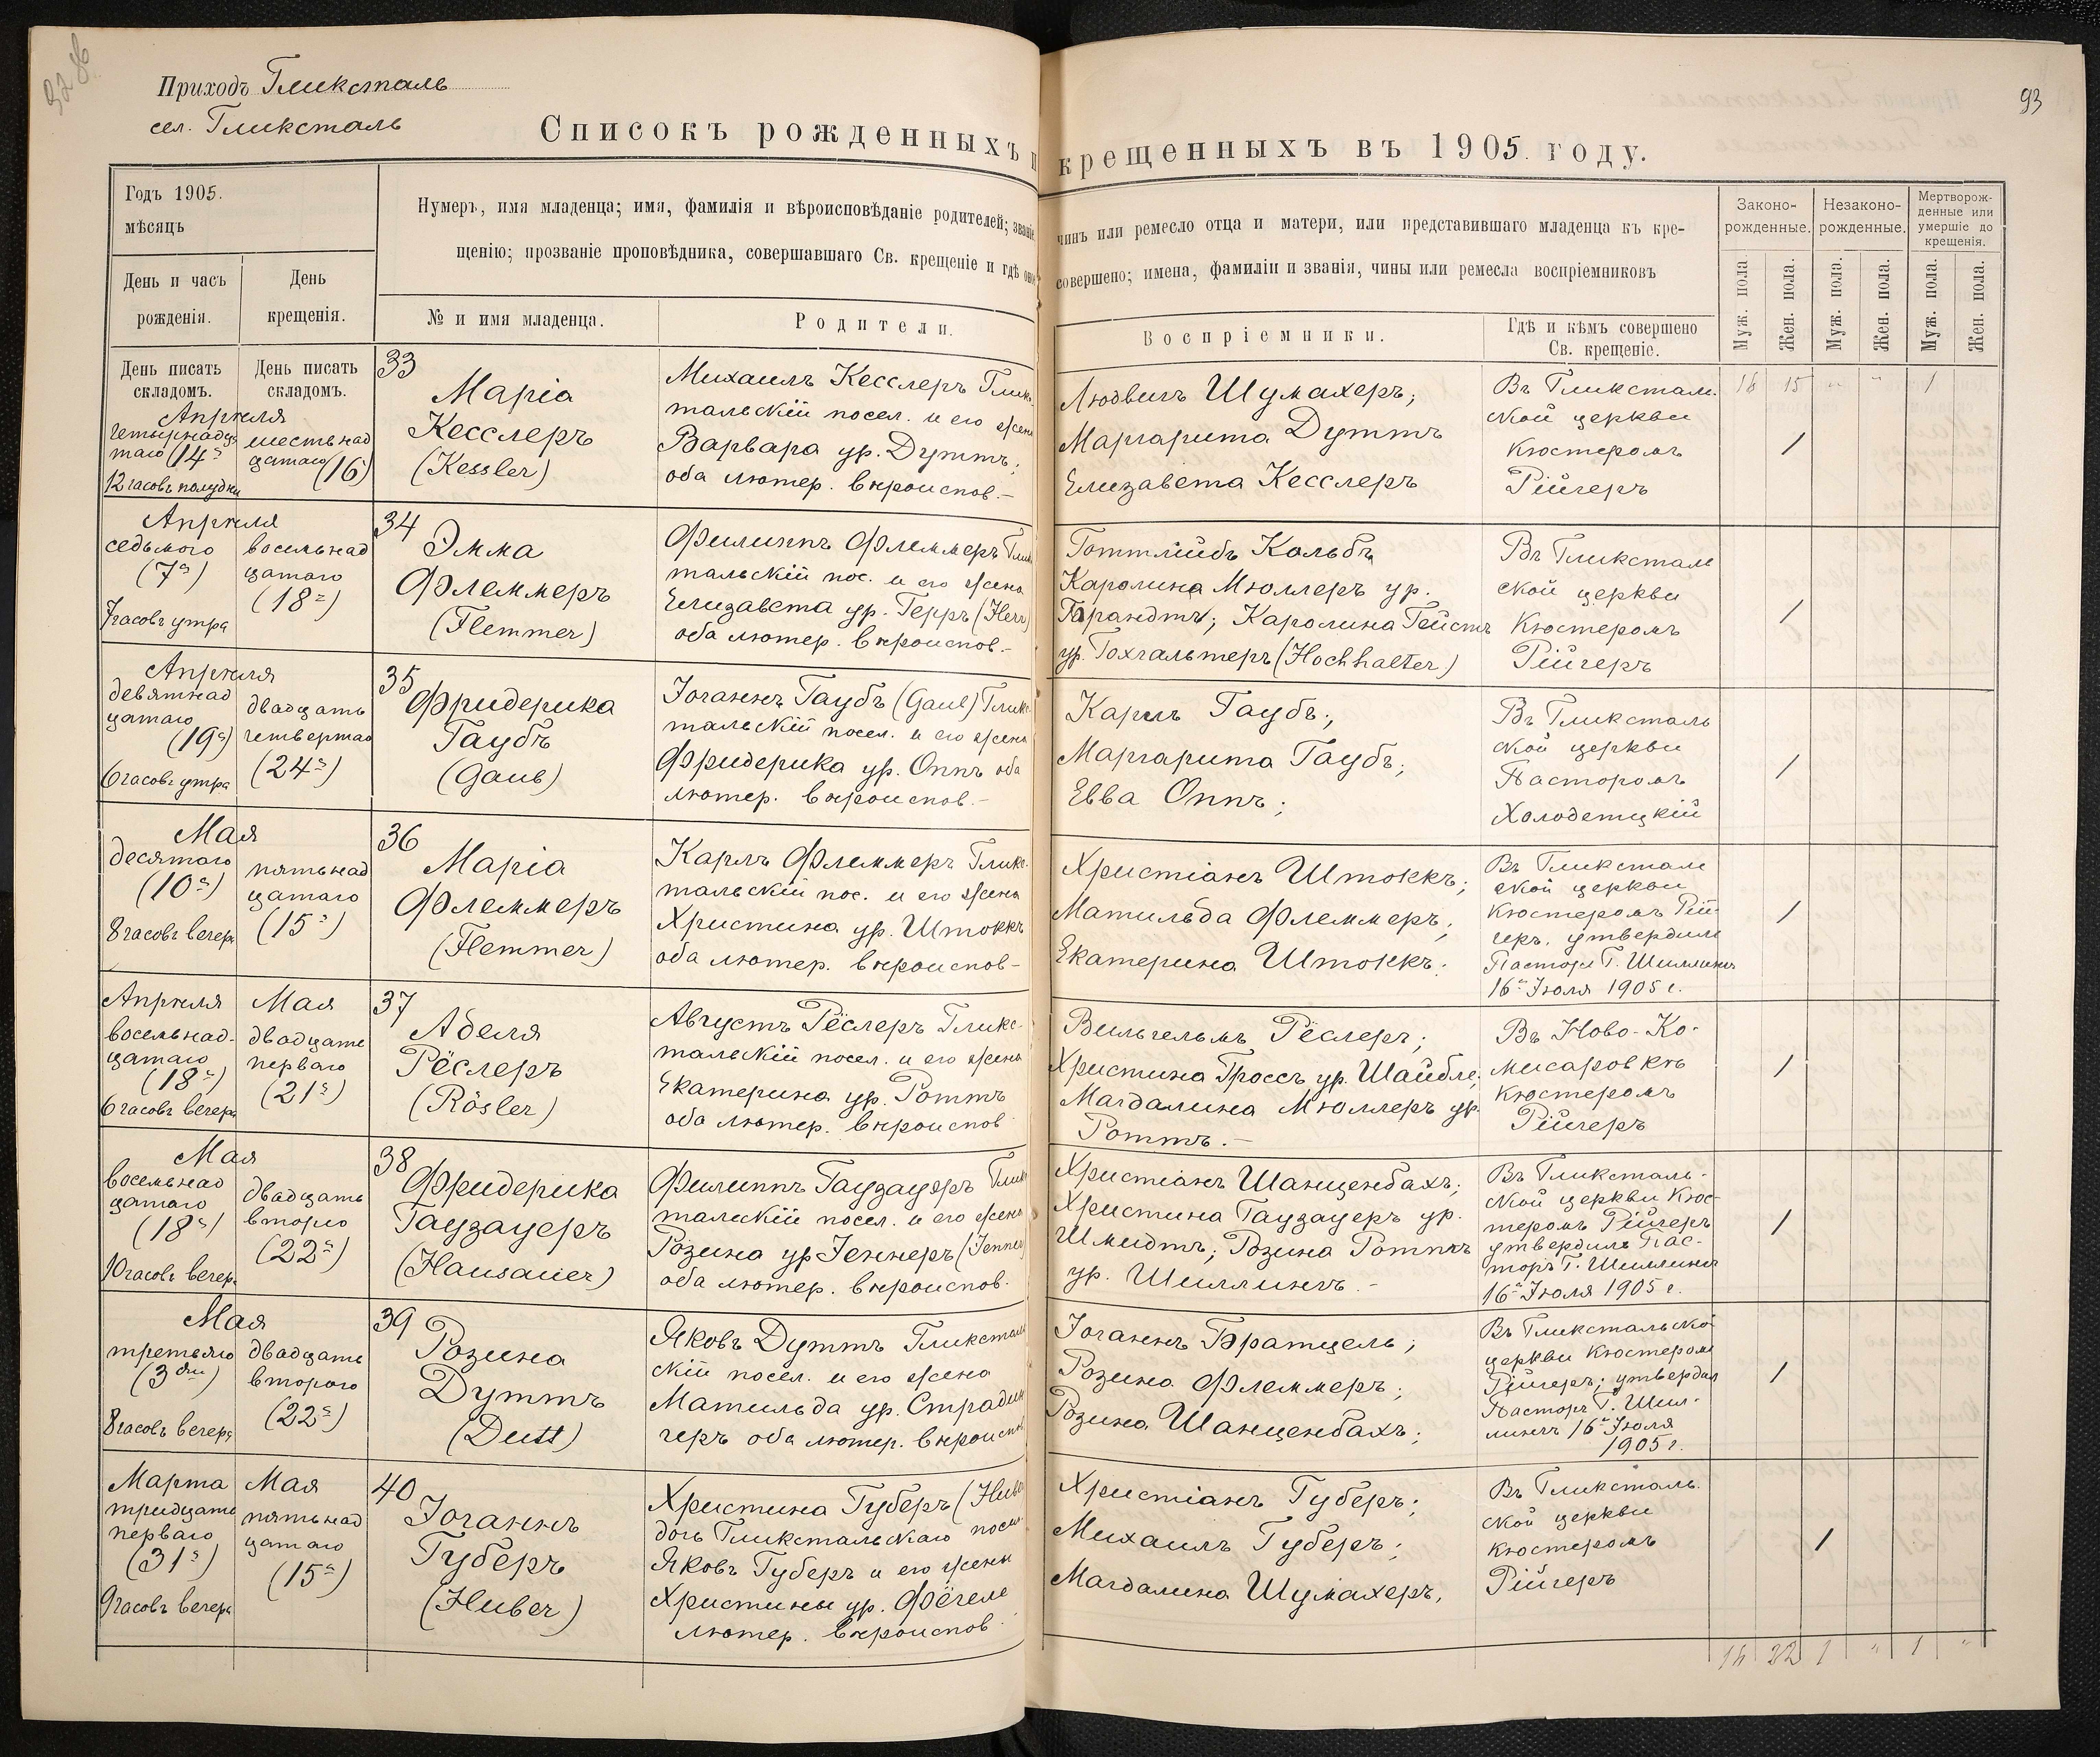 328
93
Приходъ Гликсталь
сел. Гликсталь
Списокъ рожденныхъ и крещенныхъ въ 1905. году.
Годъ 1905.
мѣсяцъ
День и часъ
рожденія.
День
крещенія.
Нумеръ, имя младенца; имя, фамилія и вѣроисповѣданіе родителей; званіе
чинъ или ремесло отца и матери, или представившаго младенца къ кре-
щенію; прозваніе проповѣдника, совершавшаго Св. крещеніе и гдѣ оно
совершено; имена, фамиліи и званія, чины или ремесла воспріемниковъ
№ и имя младенца.
Родители.
Воспріемники.
Гдѣ и кѣмъ совершено
Св. крещеніе.
Законо-
рожденные.
Незаконо-
рожденные.
Мертворож-
денные или
умершіе до
крещенія.
Муж. пола.
Жен. пола.
Муж. пола.
Жен. пола.
Муж. пола.
Жен. пола.
День писать
складомъ.
День писать
складомъ.
Апрѣля
четырнадца
таго (14го)
12 часовъ полудни
шестьнад
цатаго
(16)
33
Марія
Кесслеръ
(Kessler)
Михаилъ Кесслеръ Гликс
тальскій посел. и его жена
Варвара ур. Дуттъ;
оба лютер. вѣроиспов.-
Людвигъ Шумахеръ;
Маргарита Дуттъ
Елизавета Кесслеръ
Въ Гликсталь-
ской церкви
Кюстеромъ
Рійгеръ
18 15 " " 1
/
Апрѣля
седьмого
(7го)
7 часовъ утра
восемьнад
цатаго
(18го)
34
Эмма
Флеммеръ
(Flemmer)
Филиппъ Флеммеръ Глик
тальскій пос. и его жена
Елизавета ур. Герръ (Herr)
оба лютер. вѣроиспов.-
Готтлійбъ Кольбъ
Каролина Мюллеръ ур.
Гарандтъ; Каролина Гейстъ
ур. Гохгальтеръ (Hochhalter)
Въ Гликсталь
ской церкви
Кюстеромъ
Рійгеръ
/
Апрѣля
девятнад
цатаго
(19го)
6 часовъ утра
двадцать
четвертаго
(24го)
35
Фридерика
Гаубъ
(Gaub)
Іоганнъ Гаубъ (Gaub) Гликс-
тальскій посел. и его жена
Фридерика ур. Оппъ оба
лютер. вѣроиспов.-
Карлъ Гаубъ;
Маргарита Гаубъ;
Евва Оппъ;
Въ Гликсталь
ской церкви
Пасторомъ
Холодетцкій
/
Мая
десятаго
(10го)
8 часовъ вечера
пятьнад
цатаго
(15го)
36
Марія
Флеммеръ
(Flemmer)
Карлъ Флеммеръ Гликс-
тальскій пос. и его жена
Христина ур. Штоккъ
оба лютер. вѣроиспов-
Христіанъ Штоккъ;
Матильда Флеммеръ;
Екатерина Штоккъ;
Въ Гликсталь
ской церкви
Кюстеромъ Рій-
геръ. утвердилъ
Пасторъ Г. Шиллингъ
16го Іюля 1905 г.
/
Апрѣля
восемьнад-
цатаго
(18го)
6 часовъ вечера
Мая
двадцать
перваго
(21го)
37
Аделя
Рёслеръ
(Rösler)
Августъ Рёслеръ Гликс-
тальскій посел. и его жена
Екатерина ур. Роттъ
оба лютер. вѣроиспов
Вильгельмъ Рёслеръ;
Христина Гроссъ ур. Шайбле;
Магдалина Мюллеръ ур.
Роттъ.-
Въ Ново-Ко-
мисаровкѣ
Кюстеромъ
Рійгеръ
/
Мая
восемьнад
цатаго
(18го)
10 часовъ вечера
двадцать
второго
(22го)
38
Фридерика
Гаузауеръ
(Hausauer)
Филиппъ Гаузауеръ Глик
тальскій посел. и его жена
Розина ур Іеннеръ (Jenner)
оба лютер. вѣроиспов.
Христіанъ Шанценбахъ;
Христина Гаузауеръ ур.
Шмидтъ; Розина Роттъ
ур. Шиллингъ.-
Въ Гликсталь-
ской церкви Кюс-
теромъ Рійгеръ
утвердилъ Пас-
торъ Г. Шиллингъ
16го Іюля 1905 г.
/
Мая
третьяго
(3го)
8 часовъ вечера
двадцать
второго
(22го)
39
Розина
Дуттъ
(Dutt)
Яковъ Дуттъ Гликсталь
скій посел. и его жена
Матильда ур. Страдин
геръ оба лютер. вѣроиспов
Іоганнъ Братцель;
Розина Флеммеръ;
Розина Шанценбахъ;
Въ Гликстальской
церкви Кюстеромъ
Рійгеръ; утвердилъ
Пасторъ Г. Шил-
лингъ 16го Іюля
1905 г.
/
Марта
тридцать
перваго
(31го)
9 часовъ вечера
Мая
пятьнад
цатаго
(15го)
40
Іоганнъ
Губеръ
(Huber)
Христина Губеръ (Huber
дочь Гликстальскаго посел
Яковъ Губеръ и его жены
Христины ур. Фёгеле
лютер. вѣроиспов.
Христіанъ Губеръ;
Михаилъ Губеръ;
Магдалина Шумахеръ,
Въ Гликсталь-
ской церкви
Кюстеромъ
Рійгеръ
/
18 22 1 " 1 "